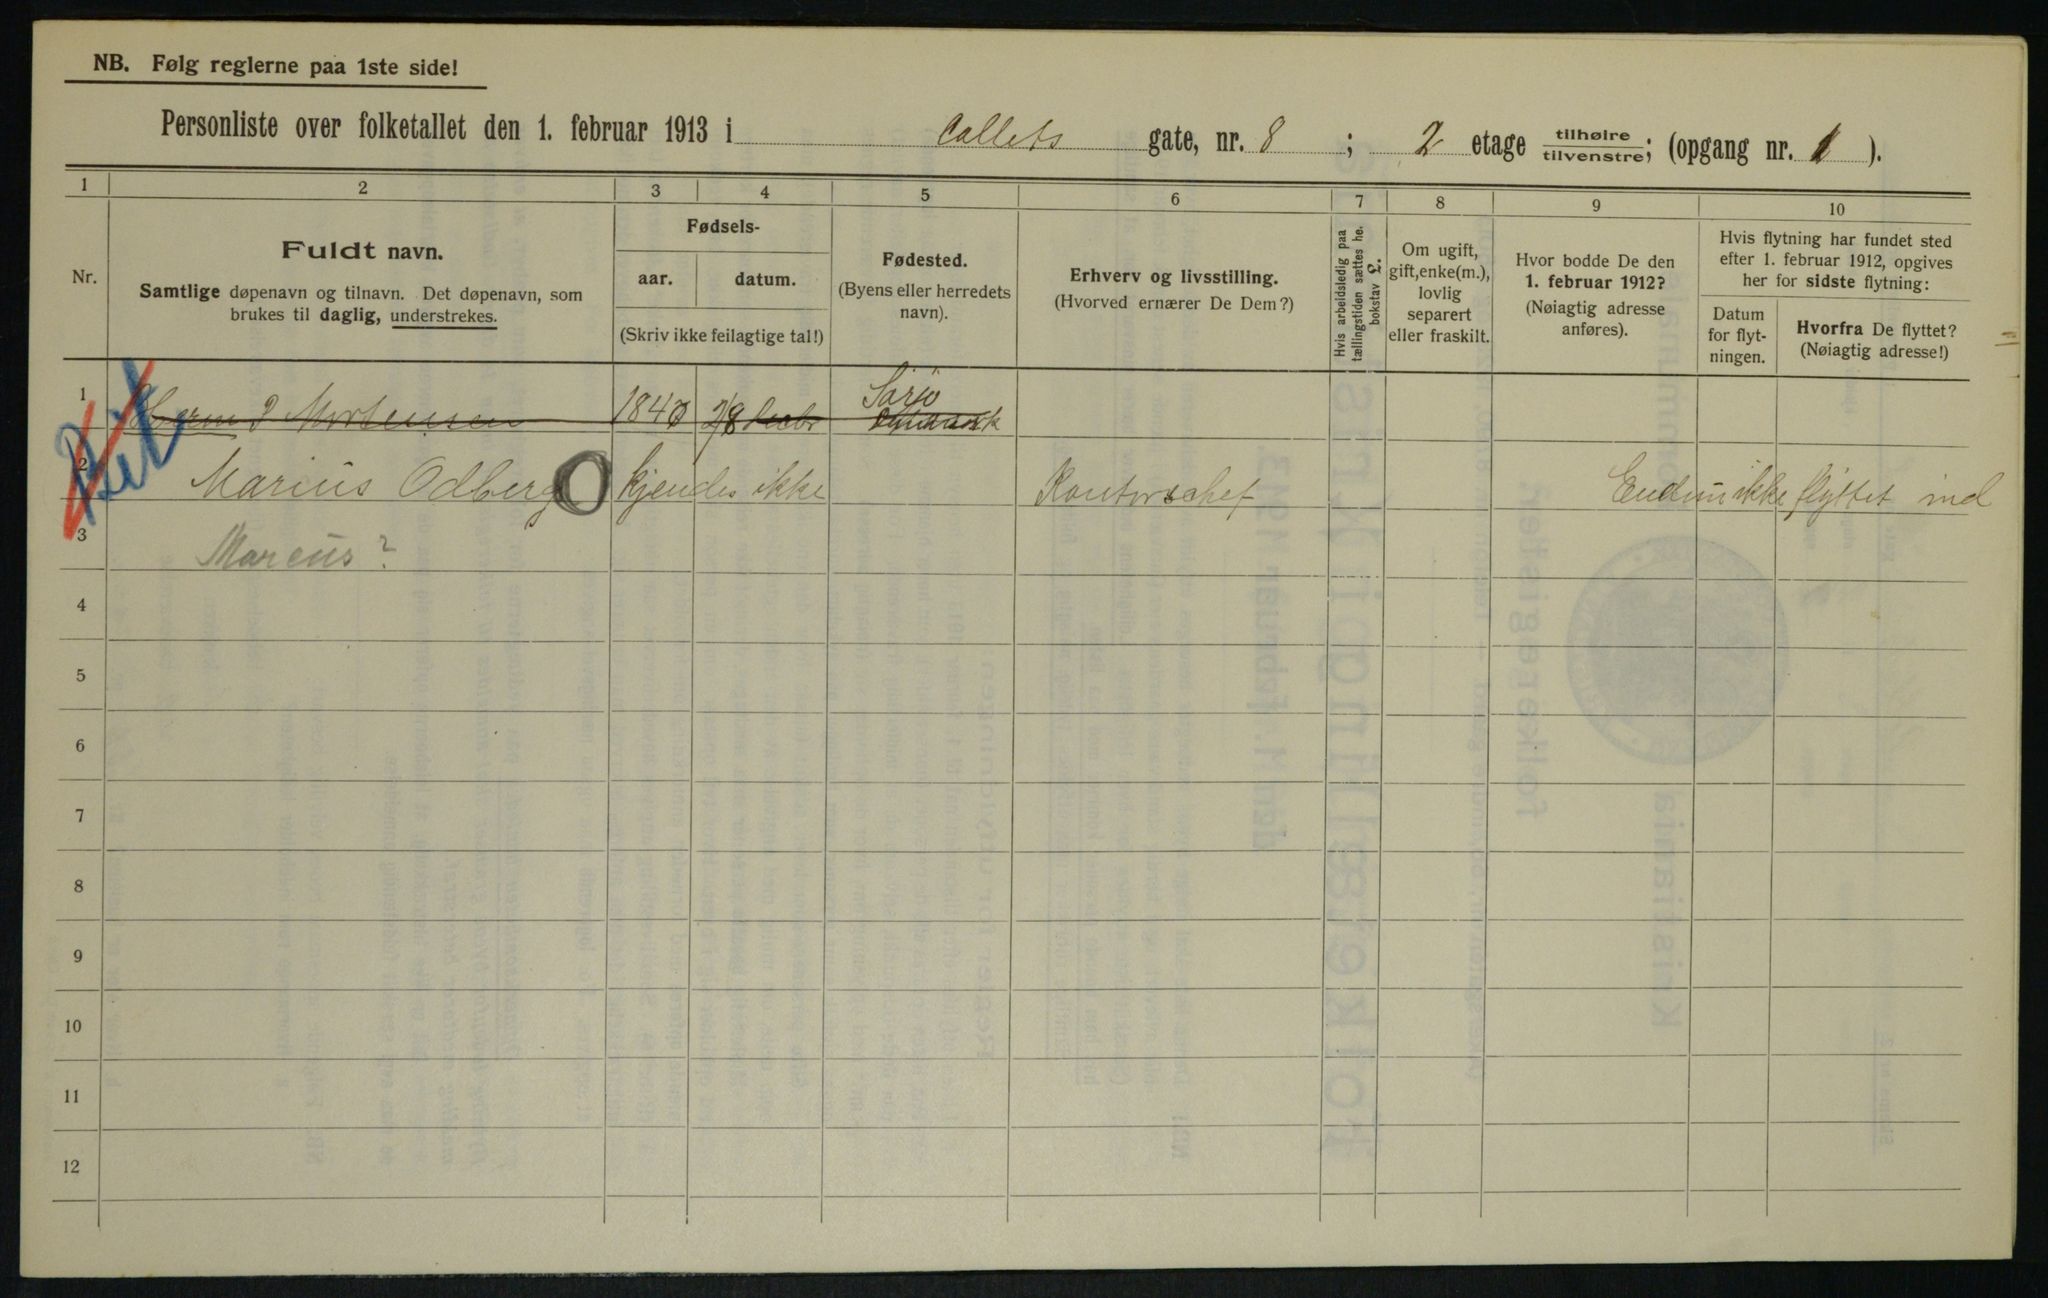 NB. Følg reglerne paa 1ste side!
Personliste over folketallet den 1. februar 1913 i Collets gate, nr. 8 ; 2 etage tilhøire/tilvenstre; (opgang nr. 1 ).
1 2 3 4 5 6 7 8 9 10
Nr.
Fuldt navn.
Samtlige døpenavn og tilnavn. Det døpenavn, som
brukes til daglig, understrekes.
Fødsels-
aar. datum.
(Skriv ikke feilagtige tal!)
Fødested.
(Byens eller herredets
navn).
Erhverv og livsstilling.
(Hvorved ernærer De Dem?)
Hvis arbeidsledig paa
tællingstiden sættes he.
bokstav L.
Om ugift,
gift, enke(m.),
lovlig
separert
eller fraskilt.
Hvor bodde De den
1. februar 1912?
(Nøiagtig adresse
anføres).
Hvis flytning har fundet sted
efter 1. februar 1912, opgives
her for sidste flytning:
Datum
for flyt-
ningen.
Hvorfra De flyttet?
(Nøiagtig adresse!)
1 P Mortensen 184
2 Marius Odberg kjendes ikke Kontorschef Endnu ikke flyttet ind
3 Marcus?
4
5
6
7
8
9
10
11
12